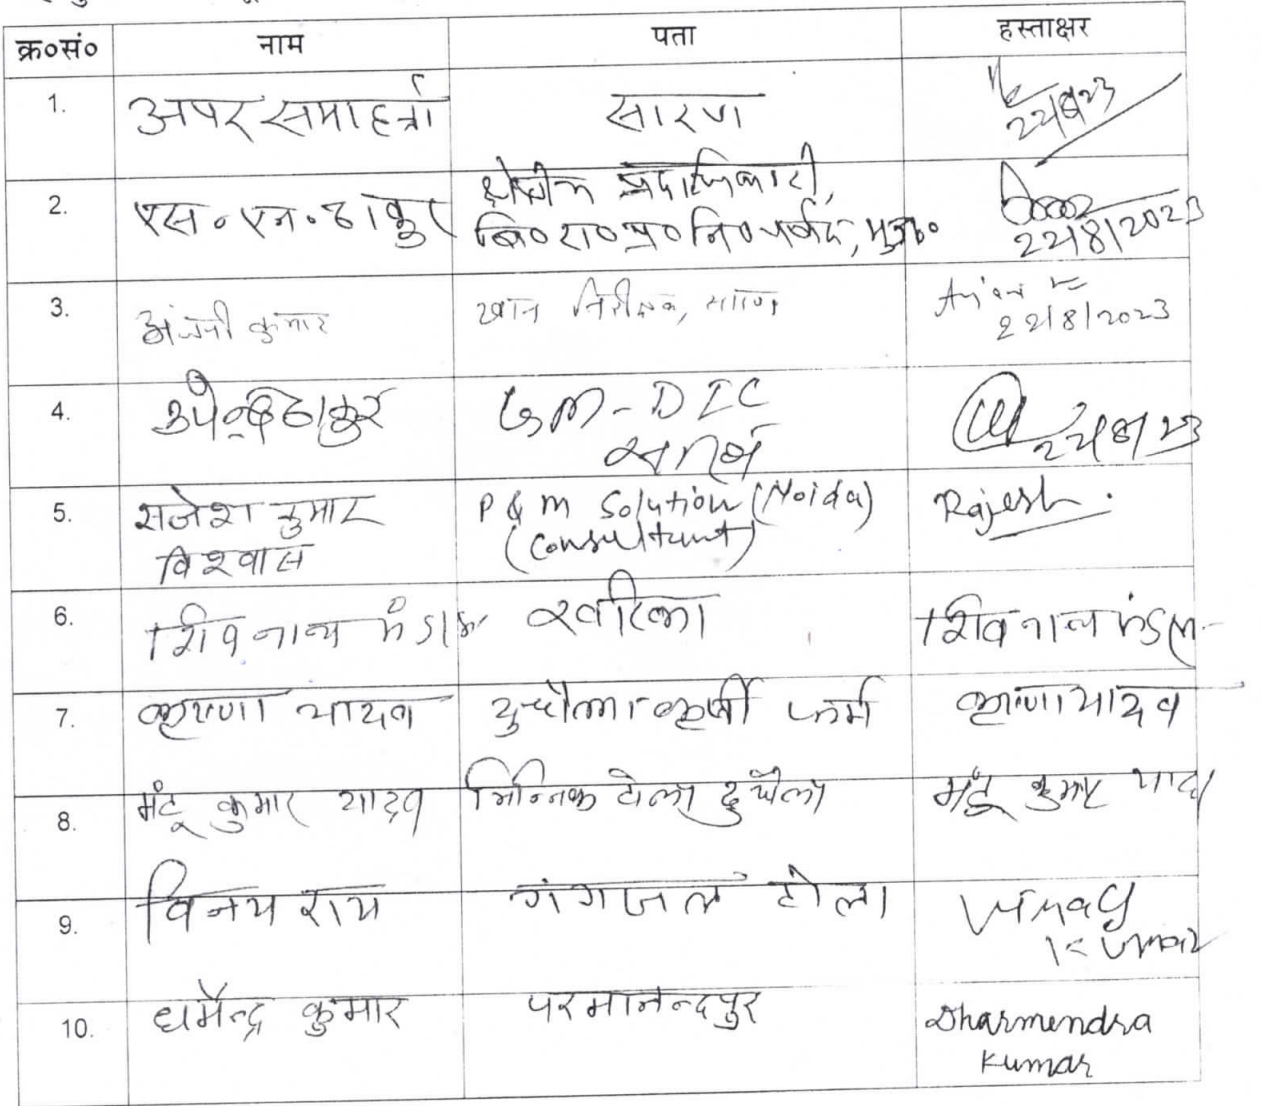 क्र०सं० नाम पता हस्ताक्षर
1. अपर समाहर्त्ता सारण 22/8/23
2. एस० एन० ठाकुर क्षेत्रीय पदाधिकारी,
बि० रा० प्र० नि० पर्षद, मुज़० 22/8/2023
3. अंजनी कुमार खान निरीक्षक, सारण
22/8/2023
4. उपेन्द्र ठाकुर GM-DIC 22/8/23
5. राजेश कुमार P & M Solution (Noida) Rajesh
विश्वास (Consultant)
6. शिवनाथ मंडल शिवनाथ मंडल
7. कृष्णा यादव दुधौला कृषी फर्म कृष्णा यादव
8. मंटू कुमार यादव भिन्निक टोला दुधैला मंटू कुमार यादव
9. विनय राय गंगाजल टोला Vinay
Kumar
10. धर्मेन्द्र कुमार परमानन्दपुर Dharmendra
Kumar